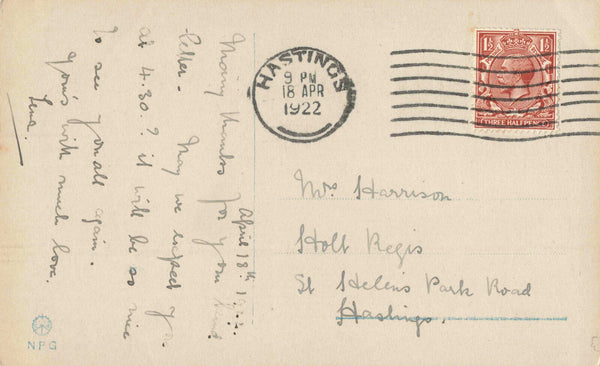 April 18th 1922.
Many thanks for your kind
letter. May we expect you
at 4.30.? it will be so nice
to see you all again.
Yours with much love.
Lena.
HASTINGS
9 PM
18 APR
1922
1½ 1½
THREE HALFPENCE
Mrs Harrison
Holt Regis
St Helens Park Road
Hastings.
NPG